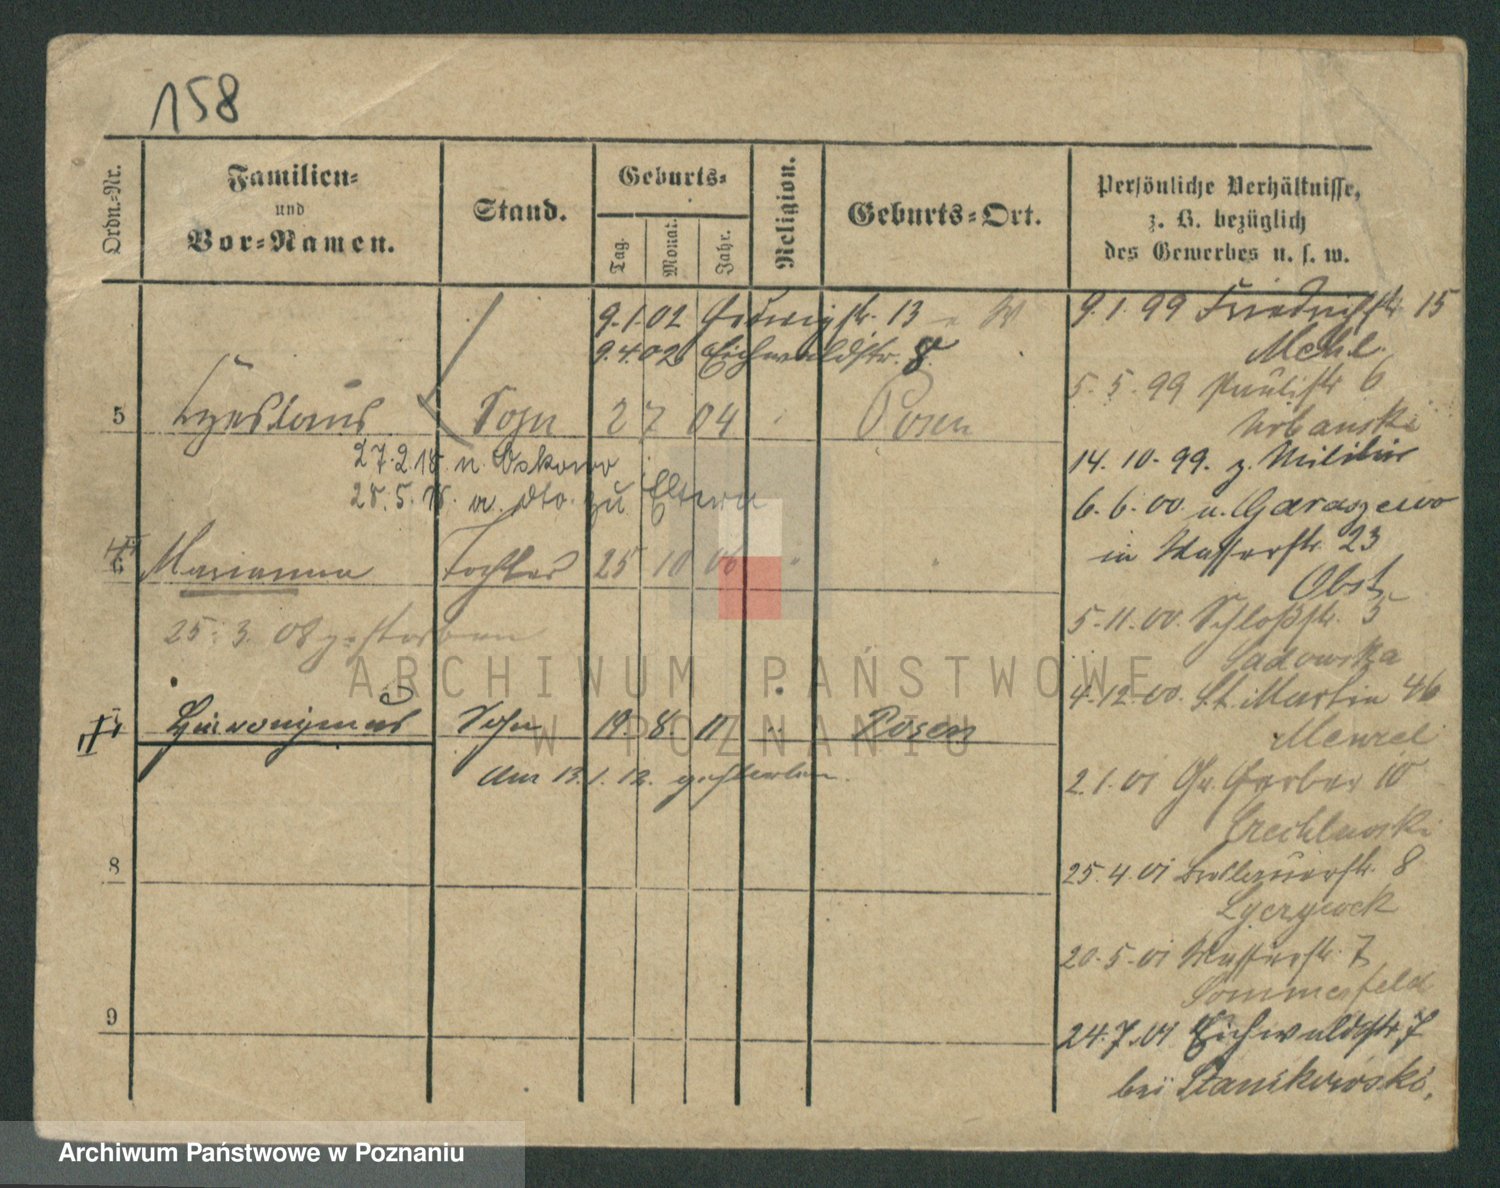 158
Ordn.-Nr.
Familien-
und
Vor-Namen.
Stand.
Geburts-
Tag.
Monat.
Jahr.
Religion.
Geburts-Ort.
Persönliche Verhältnisse,
z. B. bezüglich
des Gewerbes u. s. w.
9.1.02 Hedwigstr. 13
9.4.02 Eichwaldstr. 8.
5 Czeslaus Sohn 2 7 04 Posen
27.2.18. n. Oskowo
28.5.18. v. dto. zu Eltern
6 Marianna Tochter 25 10 06 "
25.3.08 gestorben
7 Hieronymus Sohn 19. 8. 11 " Posen
Am 13.1.12. gestorben.
8
9
9.1.99 Friedrichstr. 15
Mehl.
5.5.99 Paulistr 6
Urbanski
14.10.99. z. Militär
6.6.00 n. Garaszewo
in Wasserstr. 23
Obst
5.11.00. Schloßstr. 5
Sadowska
4.12.00. St. Martin 46
Menzel
2.1.01 Gr. Gerber 10
25.4.01 Breslauerstr. 8
20.5.01 Wasserstr. 7
Sommerfeld
24.7.01 Eichwaldstr. 7
bei Stanikowski.
ARCHIWUM PAŃSTWOWE
W POZNANIU
Archiwum Państwowe w Poznaniu